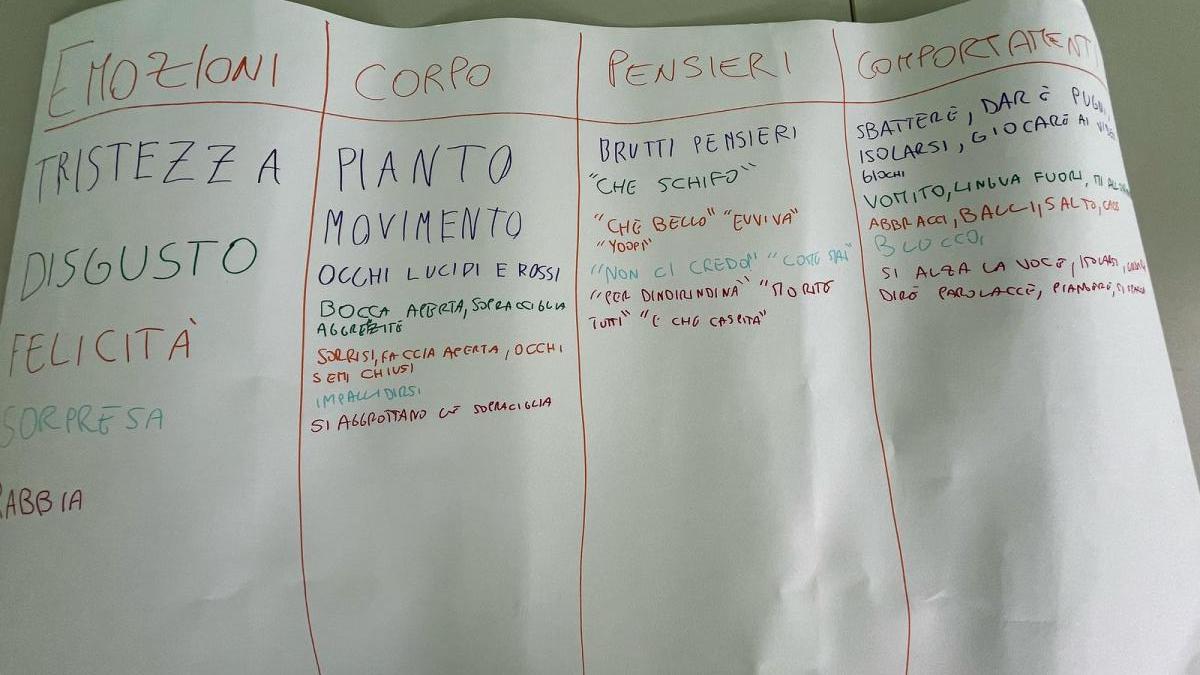 EMOZIONI
TRISTEZZA
DISGUSTO
FELICITÀ
SORPRESA
RABBIA
CORPO
PIANTO
MOVIMENTO
OCCHI LUCIDI E ROSSI
BOCCA APERTA, SOPRACCIGLIA
SORRISI, FACCIA APERTA, OCCHI
SEMI CHIUSI
IMPALLIDIRSI
SI AGGROTTANO LE SOPRACIGLIA
PENSIERI
BRUTTI PENSIERI
"CHE SCHIFO"
"CHE BELLO" "EVVIVA"
"YOOPI"
"NON CI CREDO" "COME MAI"
"PER DINDIRINDINA" "MORITE
TUTTI" "E CHE CASPITA"
COMPORTAMENTI
SBATTERE, DARE PUGNI,
ISOLARSI, GIOCARE AI VIDEO
GIOCHI
VOMITO, LINGUA FUORI, MI
ABBRACCI, BALLI, SALTO,
BLOCCO,
SI ALZA LA VOCE, ISOLARSI,
DIRE PAROLACCE, PIANGERE,